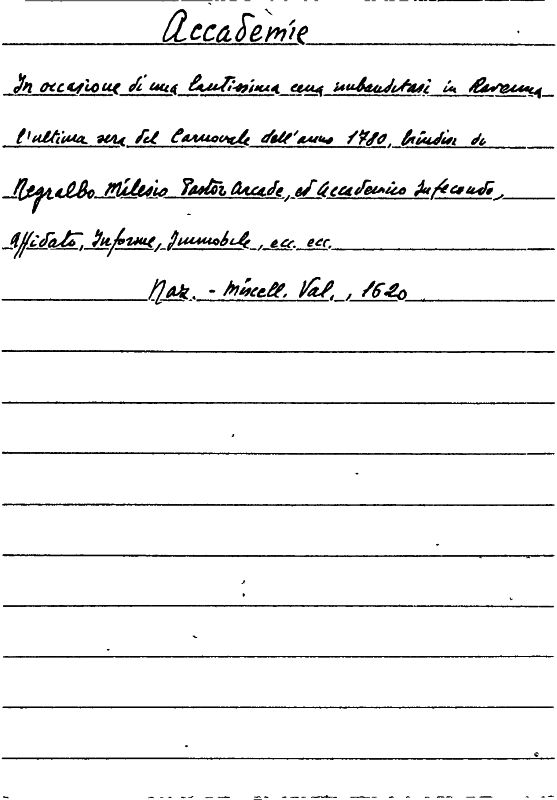 Accadèmie
In occasione di una lautissima cena imbanditasi in Ravenna
l'ultima sera del Carnovale dell'anno 1780, brindisi di
Negralbo Milesio Pastor Arcade, ed Accademico Infecondo,
Affidato, Informe, Immobile, ecc. ecc.
Naz. - Miscell. Val., 1620